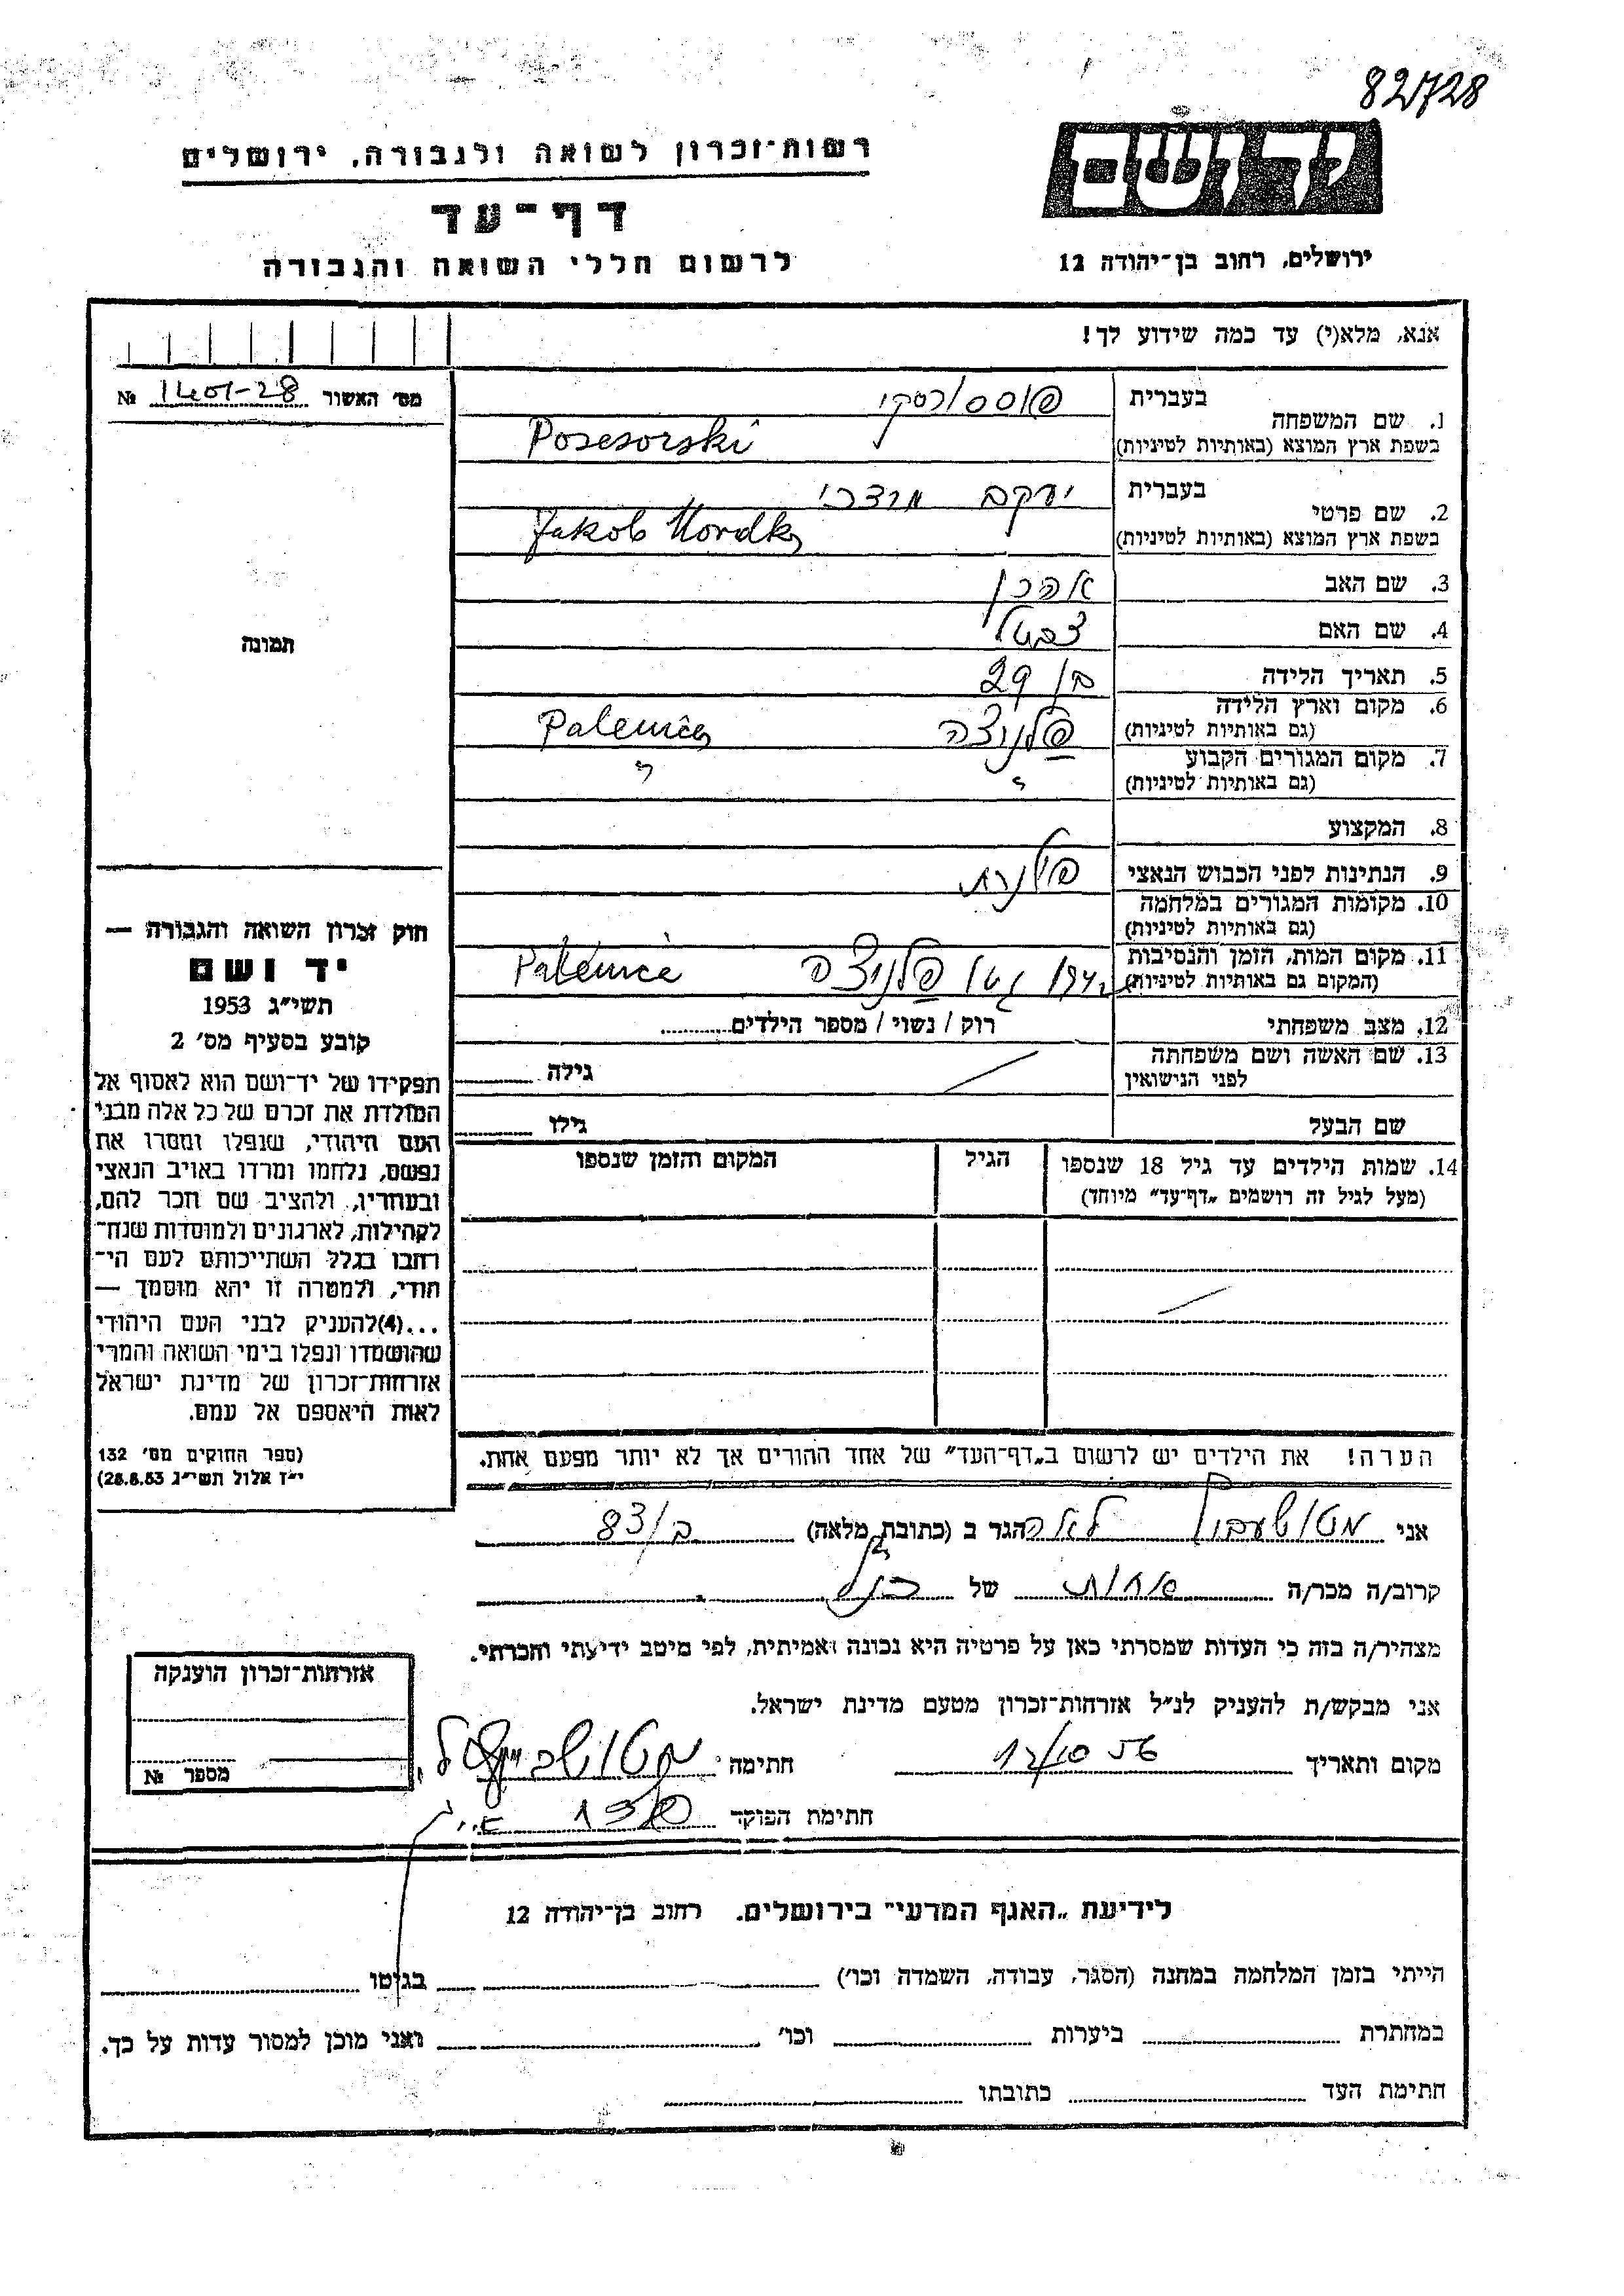 82728
יד ושם
רשות־זכרון לשואה ולגבורה, ירושלים
דף־עד
לרשום חללי השואה והגבורה
ירושלים, רחוב בן־יהודה 12
אנא, מלא(י) עד כמה שידוע לך!
מס׳ האשור 1401-28 №
תמונה
1. שם המשפחה בעברית
Posesorski
בשפת ארץ המוצא (באותיות לטיניות)
2. שם פרטי בעברית יעקב מרדכי
Jakob Mordka
בשפת ארץ המוצא (באותיות לטיניות)
3. שם האב אהרן
4. שם האם
5. תאריך הלידה בן 29
6. מקום וארץ הלידה פלניצה Palenica
(גם באותיות לטיניות)
7. מקום המגורים הקבוע
(גם באותיות לטיניות)
8. המקצוע
9. הנתינות לפני הכבוש הנאצי פולנית
10. מקומות המגורים במלחמה
(גם באותיות לטיניות)
11. מקום המות, הזמן והנסיבות גטו פלניצה Palenice
(המקום גם באותיות לטיניות)
12. מצב משפחתי רוק / נשוי / מספר הילדים
13. שם האשה ושם משפחתה גילה
לפני הנישואין
שם הבעל גילו
14. שמות הילדים עד גיל 18 שנספו הגיל המקום והזמן שנספו
(מעל לגיל זה רושמים „דף־עד” מיוחד)
הערה! את הילדים יש לרשום ב„דף־העד” של אחד ההורים אך לא יותר מפעם אחת.
חוק זכרון השואה והגבורה —
יד ושם
תשי״ג 1953
קובע בסעיף מס׳ 2
תפקידו של יד־ושם הוא לאסוף אל
המולדת את זכרם של כל אלה מבני
העם היהודי, שנפלו ומסרו את
נפשם, נלחמו ומרדו באויב הנאצי
ובעוזריו, ולהציב שם וזכר להם,
לקהילות, לארגונים ולמוסדות שנח־
רבו בגלל השתייכותם לעם הי־
הודי, ולמטרה זו יהא מוסמך —
...(4)להעניק לבני העם היהודי
שהושמדו ונפלו בימי השואה והמרי
אזרחות־זכרון של מדינת ישראל
לאות היאספם אל עמם.
(ספר החוקים מס׳ 132
י״ז אלול תשי״ג 28.8.53)
אני לאה הגר ב (כתובת מלאה) 83
קרוב/ה מכר/ה אחות של
מצהיר/ה בזה כי העדות שמסרתי כאן על פרטיה היא נכונה ואמיתית, לפי מיטב ידיעתי והכרתי.
אני מבקש/ת להעניק לנ״ל אזרחות־זכרון מטעם מדינת ישראל.
מקום ותאריך 12/10 56 חתימה
חתימת הפוקד
אזרחות־זכרון הוענקה
מספר №
לידיעת „האגף המדעי” בירושלים. רחוב בן־יהודה 12
הייתי בזמן המלחמה במחנה (הסגר, עבודה, השמדה וכו׳) בגיטו
במחתרת ביערות וכו׳ ואני מוכן למסור עדות על כך.
חתימת העד כתובתו